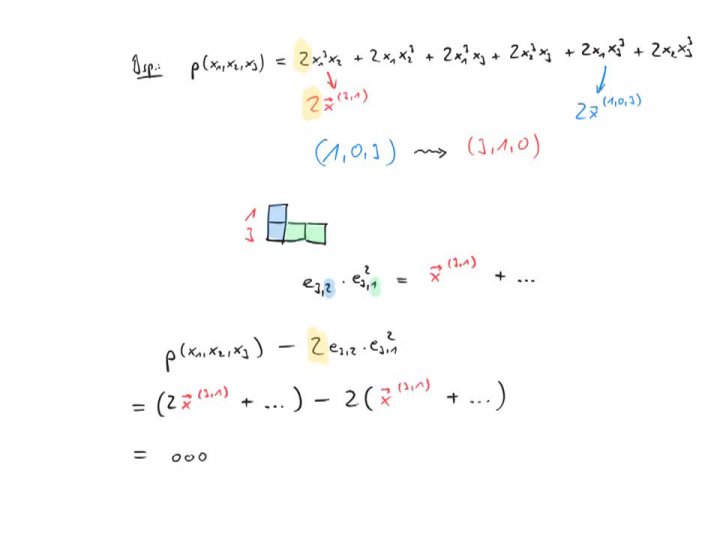 Bsp.: p(x₁,x₂,x₃) = 2x₁³x₂ + 2x₁x₂³ + 2x₁³x₃ + 2x₂³x₃ + 2x₁x₃³ + 2x₂x₃³
2x⃗^(3,1) 2x⃗^(1,0,3)
(1,0,3) ⇝ (3,1,0)
1
3
e₃,₂ · e₃,₁² = x⃗^(3,1) + ...
p(x₁,x₂,x₃) − 2 e₃,₂ · e₃,₁²
= (2x⃗^(3,1) + ...) − 2(x⃗^(3,1) + ...)
= ooo